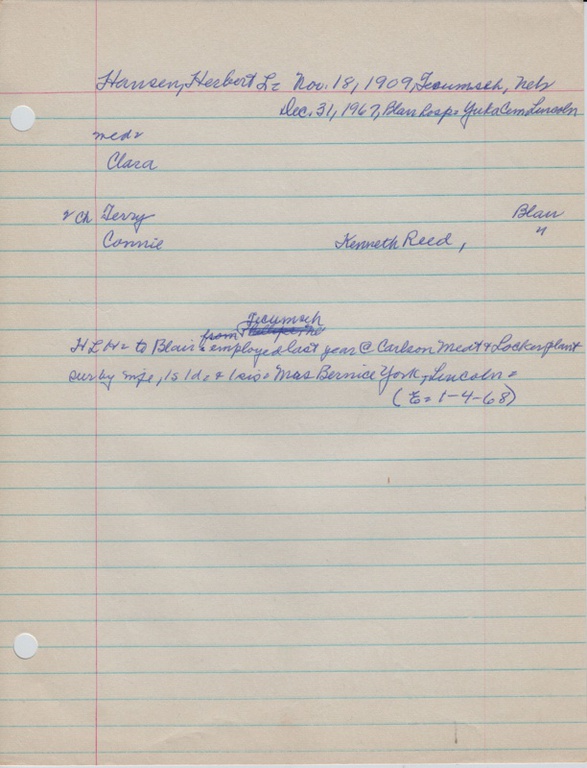 Hansen, Herbert L= Nov. 18, 1909, Tecumseh, Nebr
Dec. 31, 1967, Blair hosp= Cem Lincoln
med=
Clara
2 ch Terry Blair
Connie Kenneth Reed, "
Tecumseh
H L H= to Blair from employed last year @ Carlson Meat & Locker plant
sur by wife, 1s 1d, & 1 sis= Mrs Bernice York, Lincoln=
(E= 1-4-68)